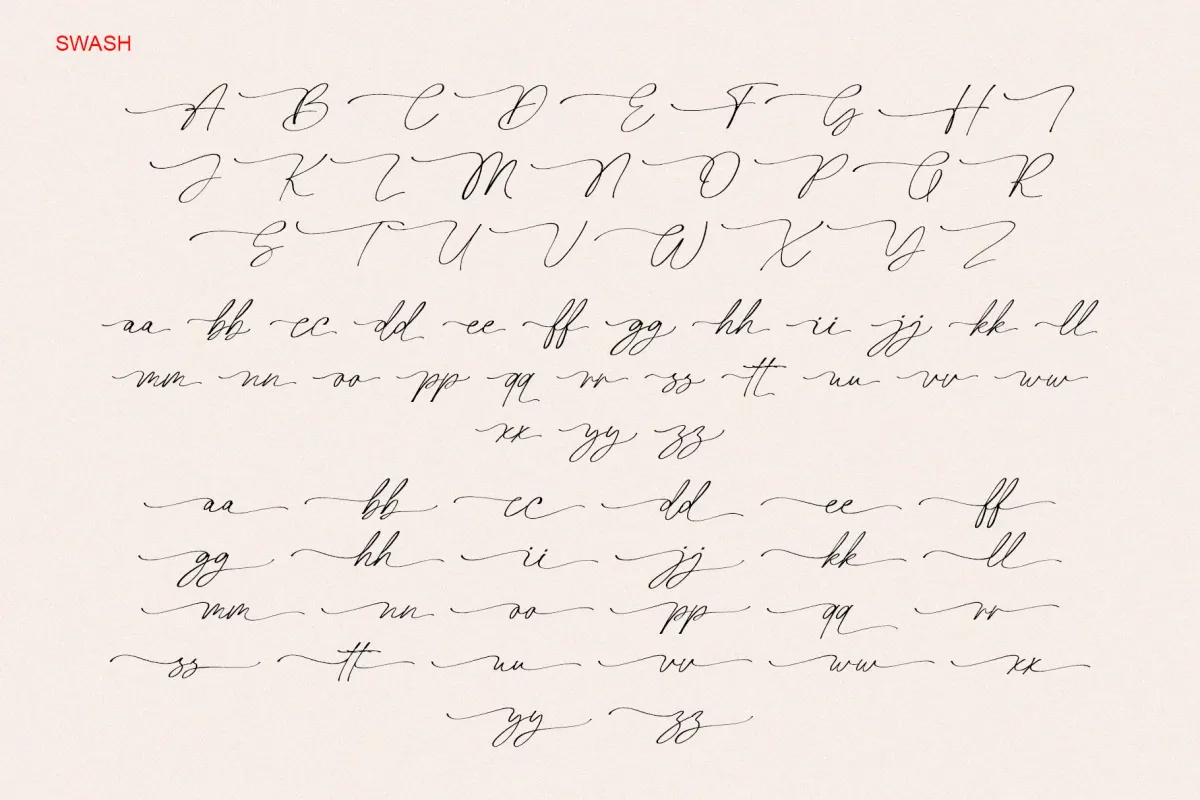 SWASH
A B C D E F G H I
J K L M N O P Q R
S T U V W X Y Z
aa bb cc dd ee ff gg hh ii jj kk ll
mm nn oo pp qq rr ss tt uu vv ww
xx yy zz
aa bb cc dd ee ff
gg hh ii jj kk ll
mm nn oo pp qq rr
ss tt uu vv ww xx
yy zz